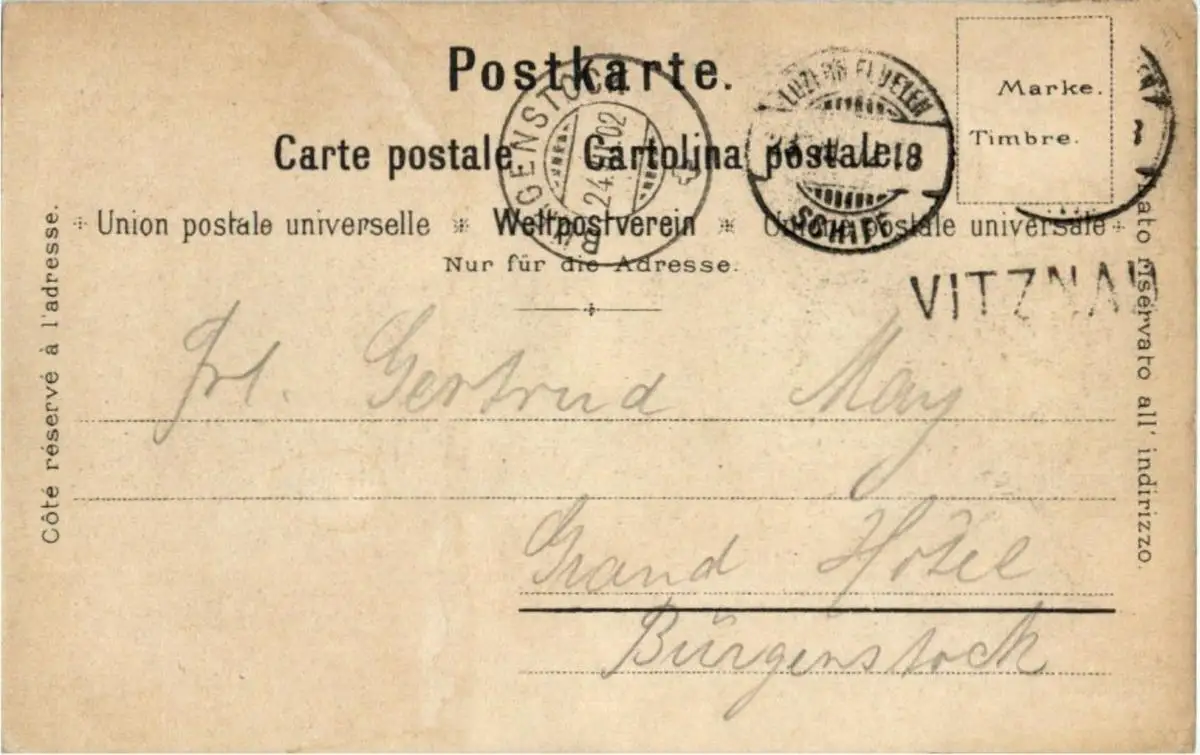 Postkarte.
Carte postale. Cartolina postale.
Union postale universelle Weltpostverein Unione postale universale
Nur für die Adresse.
Marke.
Timbre.
LUZERN FLUELEN
SCHIFF
GENSTOCK
24. 02
VITZNAU
Côté réservé à l'adresse.
riservato all' indirizzo.
Frl. Gertrud May
Grand Hotel
Bürgenstock